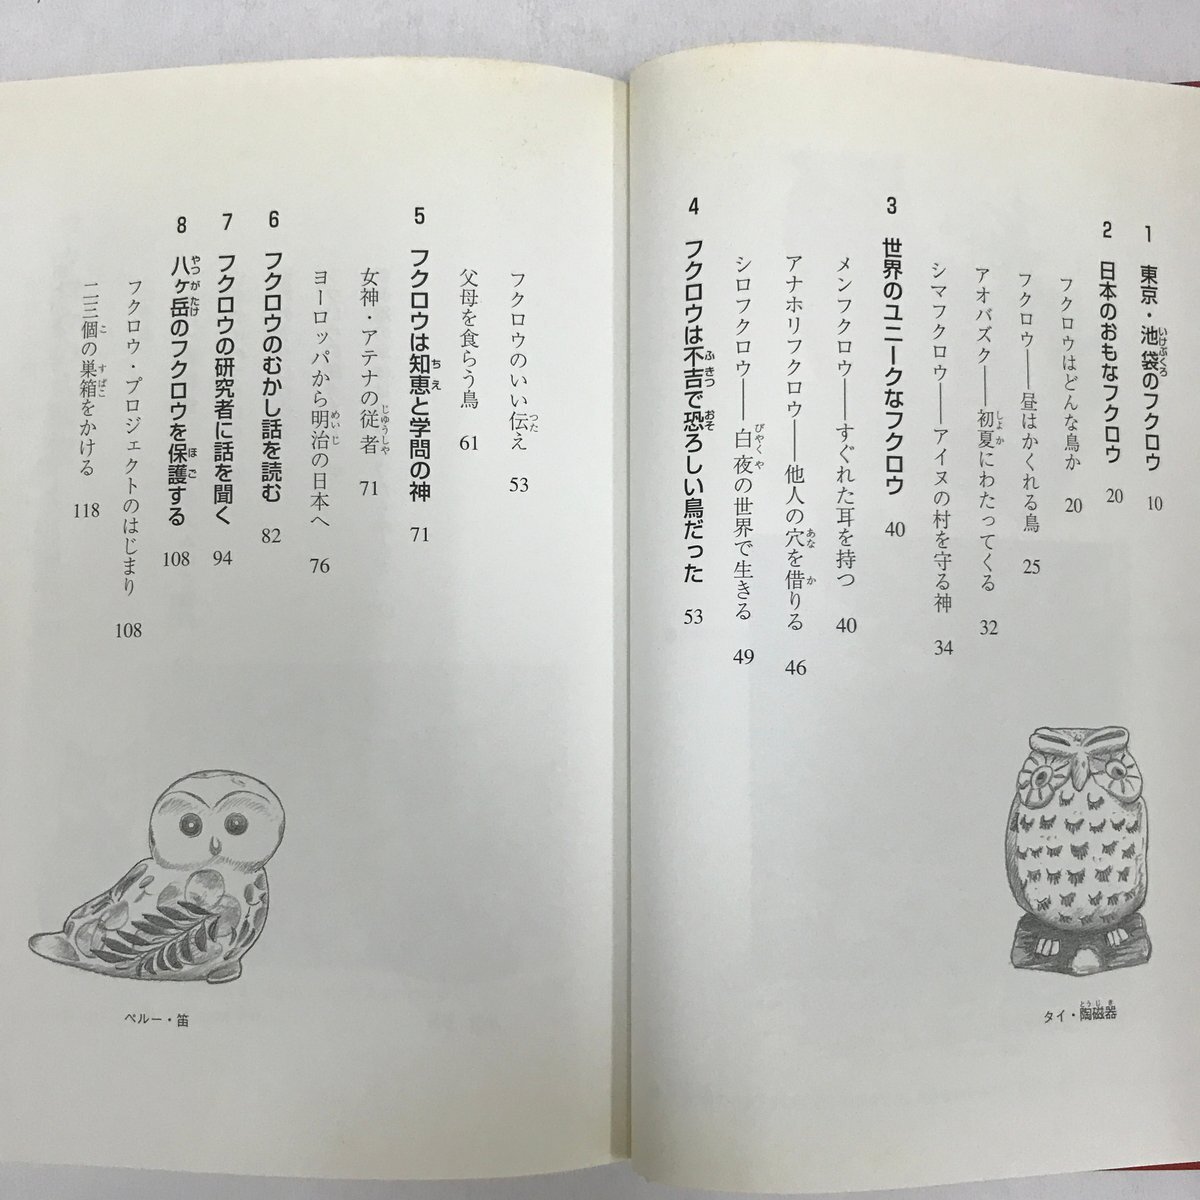 1 東京・池袋のフクロウ 10
2 日本のおもなフクロウ 20
フクロウはどんな鳥か 20
フクロウ――昼はかくれる鳥 25
アオバズク――初夏にわたってくる 32
シマフクロウ――アイヌの村を守る神 34
3 世界のユニークなフクロウ 40
メンフクロウ――すぐれた耳を持つ 40
アナホリフクロウ――他人の穴を借りる 46
シロフクロウ――白夜の世界で生きる 49
4 フクロウは不吉で恐ろしい鳥だった 53
タイ・陶磁器
フクロウのいい伝え 53
父母を食らう鳥 61
5 フクロウは知恵と学問の神 71
女神・アテナの従者 71
ヨーロッパから明治の日本へ 76
6 フクロウのむかし話を読む 82
7 フクロウの研究者に話を聞く 94
8 八ヶ岳のフクロウを保護する 108
フクロウ・プロジェクトのはじまり 108
二三個の巣箱をかける 118
ペルー・笛